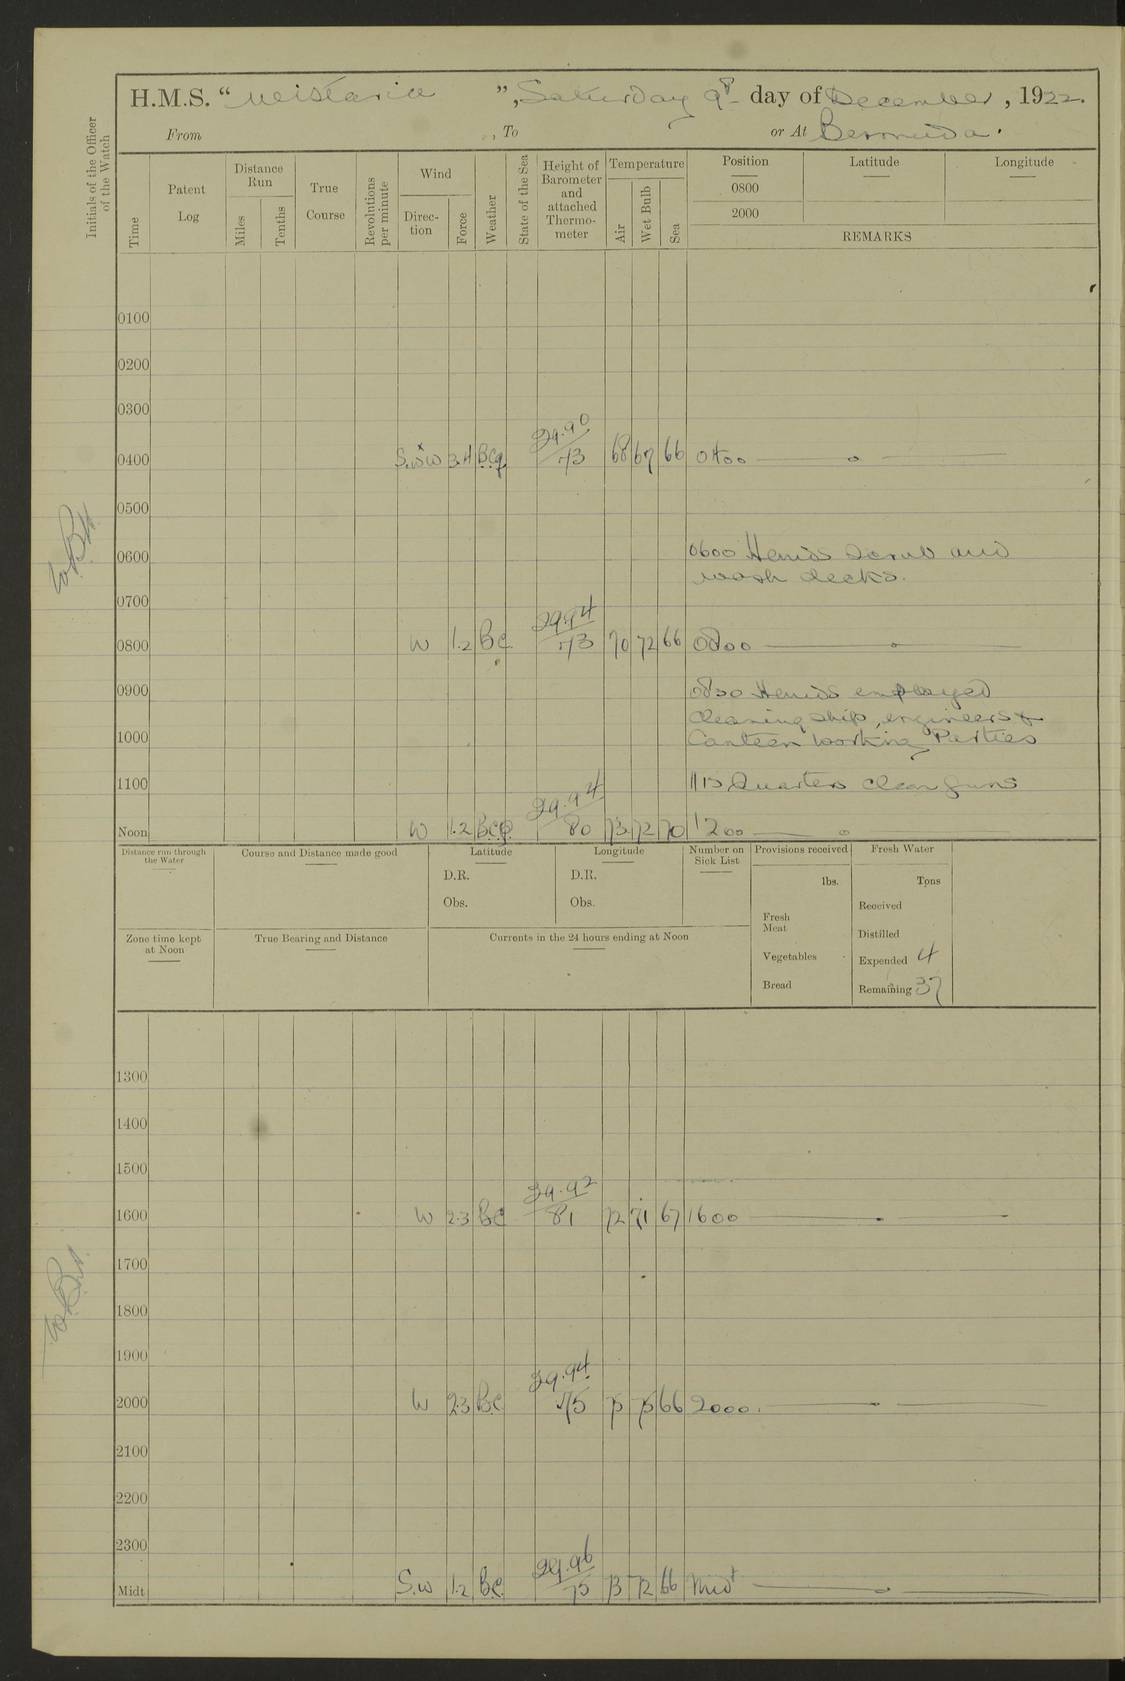 H.M.S. "Wistaria", Saturday 9th day of December, 1922.
From , To or At Bermuda.
Initials of the Officer of the Watch
Time
Patent Log
Distance Run
Miles
Tenths
True Course
Revolutions per minute
Wind
Direc-tion
Force
Weather
State of the Sea
Height of Barometer and attached Thermo-meter
Temperature
Air
Wet Bulb
Sea
Position
Latitude
Longitude
0800
2000
REMARKS
0100
0200
0300
0400 3.4 Bcq 29.90 73 68 67 66 0400
0500
0600 0600 Hands Scrub and
wash decks.
0700
0800 W 1.2 Bc 29.94 73 70 72 66 0800
0900 Hands employed
cleaning ship, engineers &
1000 Canteen working Parties
1100 1115 Quarters clean guns
Noon W 1.2 29.94 80 73 72 70 1200
Distance run through the Water
Course and Distance made good
Latitude
D.R.
Obs.
Longitude
D.R.
Obs.
Number on Sick List
Provisions received
lbs.
Fresh Meat
Vegetables
Bread
Fresh Water
Tons
Received
Distilled
Expended 4
Remaining 37
Zone time kept at Noon
True Bearing and Distance
Currents in the 24 hours ending at Noon
1300
1400
1500
1600 W 2.3 Bc 29.92 81 72 71 67 1600
1700
1800
1900
2000 W 2.3 Bc 29.94 75 66 2000.
2100
2200
2300
Midt S.W 1.2 Bc 29.96 75 73 72 66 Midt